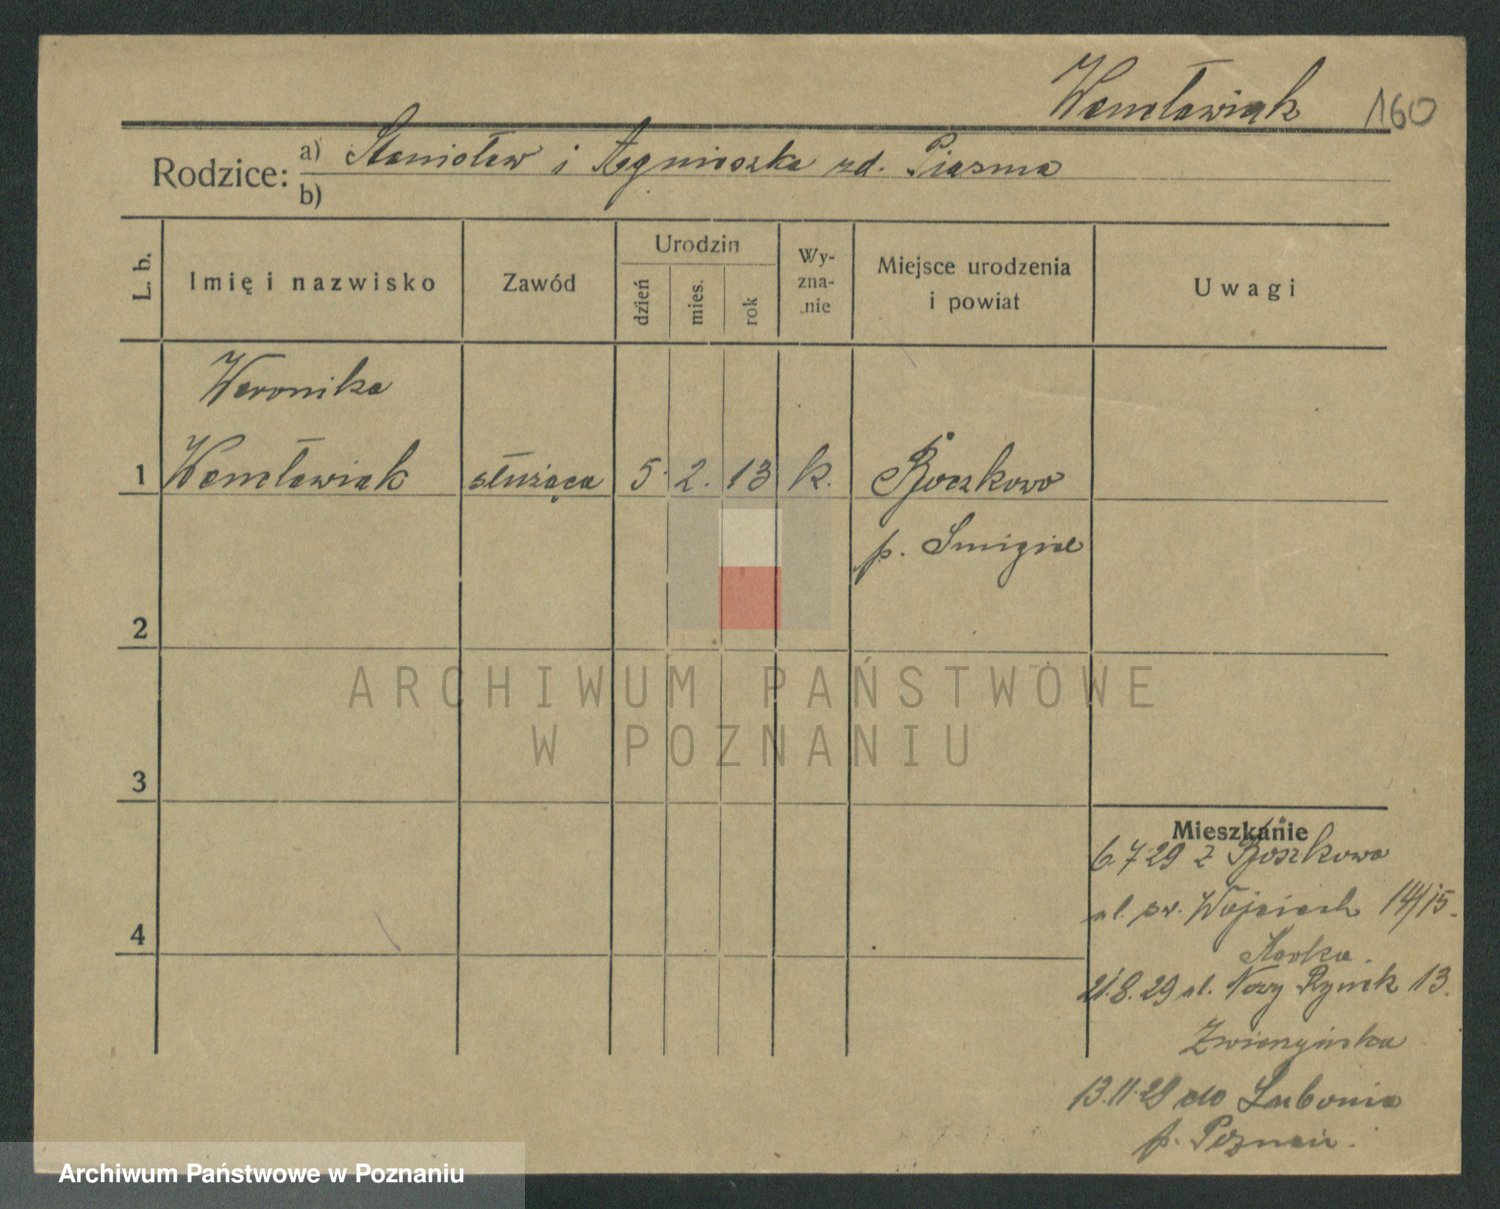 Wencławiak 160
Rodzice: a) Stanisław i Agnieszka zd. Piasma
b)
L. b.
Imię i nazwisko
Zawód
Urodzin
dzień
mies.
rok
Wy-
zna-
nie
Miejsce urodzenia
i powiat
Uwagi
Weronika
1 Wencławiak służąca 5. 2. 13 k. Boczkowo
p. Śmigiel
2
ARCHIWUM PAŃSTWOWE
W POZNANIU
3
Mieszkanie
6.7.29 z Boszkowa
ul. św. Wojciech 14/15.
4
21.8.29 ul. Nowy Rynek 13.
Zwierzyńska
13.11.29 do Lubonia
p. Poznań.
Archiwum Państwowe w Poznaniu